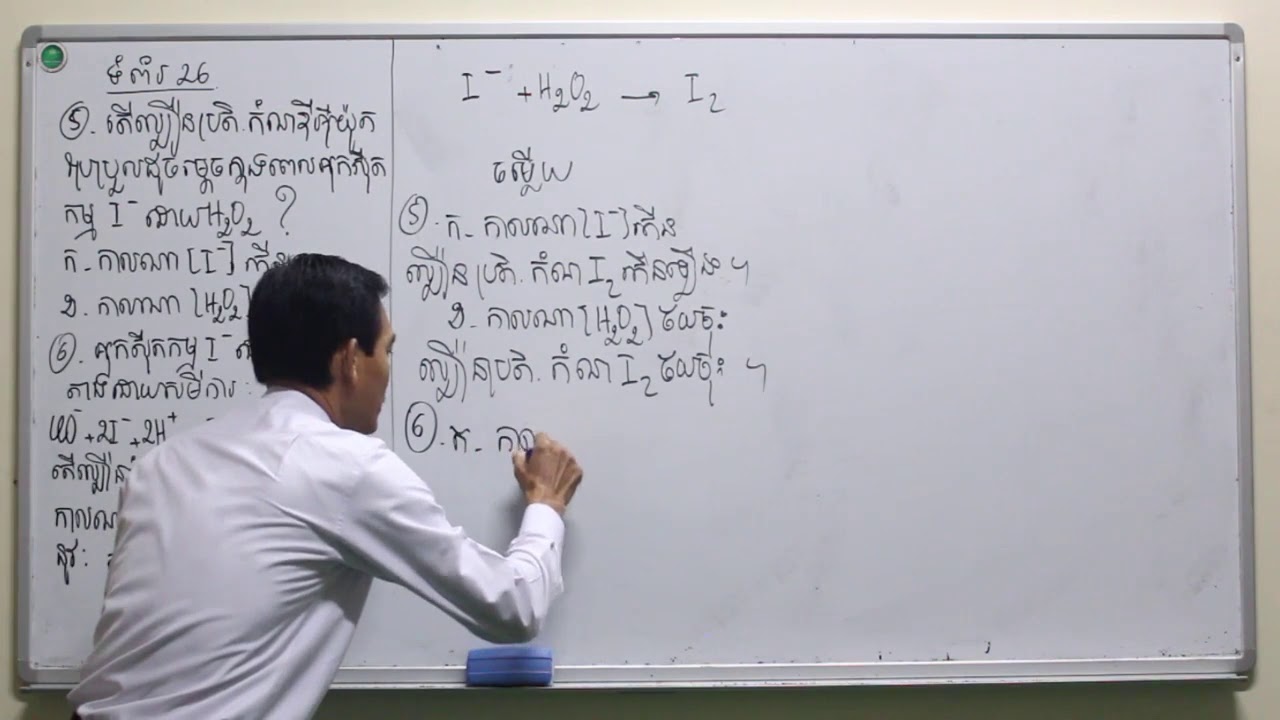 ទំព័រ 26
⑤. តើល្បឿនប្រតិ.កំណឌីអ៊ីយ៉ូត
ប្រែប្រួលដូចម្ដេចក្នុងពេលអុកស៊ីត
កម្ម I⁻ ដោយ H₂O₂ ?
ក- កាលណា [I⁻] កើន
ខ. កាលណា [H₂O₂]
⑥. អុកស៊ីតកម្ម I⁻
តាងដោយសមីការ:
+ 2I⁻ + 2H⁺
តើល្បឿន
កាលណា
នូវ:
I⁻ + H₂O₂ → I₂
ចម្លើយ
⑤. ក- កាលណា [I⁻] កើន
ល្បឿនប្រតិ.កំណ I₂ កើនឡើង ។
ខ. កាលណា [H₂O₂] ថយចុះ
ល្បឿនប្រតិ.កំណ I₂ ថយចុះ ។
⑥. ក-